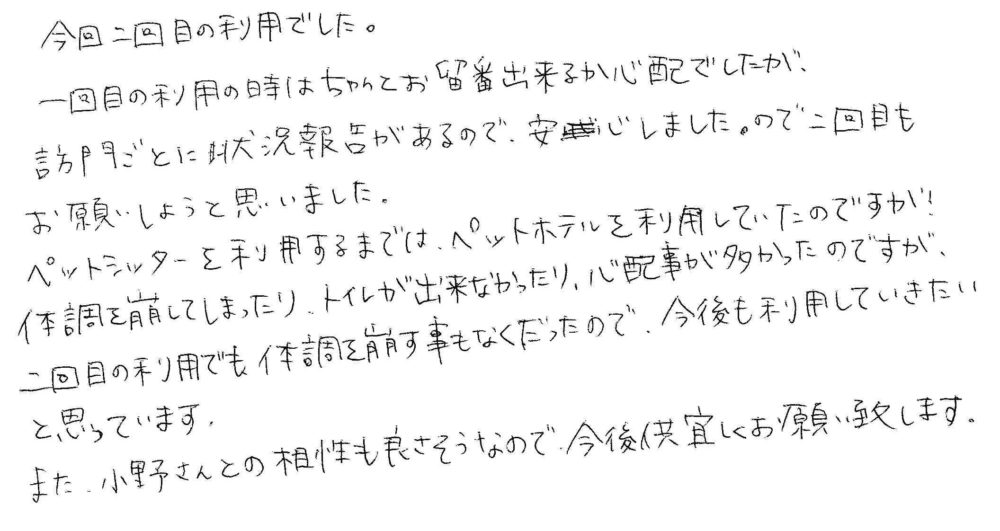 今回二回目の利用でした。
一回目の利用の時はちゃんとお留番出来るか心配でしたが、
訪門ごとに状況報告があるので、安心しました。ので二回目も
お願いしようと思いました。
ペットシッターを利用するまでは、ペットホテルを利用していたのですが!
体調を崩してしまったり、トイレが出来なかったり、心配事が多かったのですが、
二回目の利用でも体調を崩す事もなくだったので、今後も利用していきたい
と思っています。
また、小野さんとの相性も良さそうなので、今後供宜しくお願い致します。